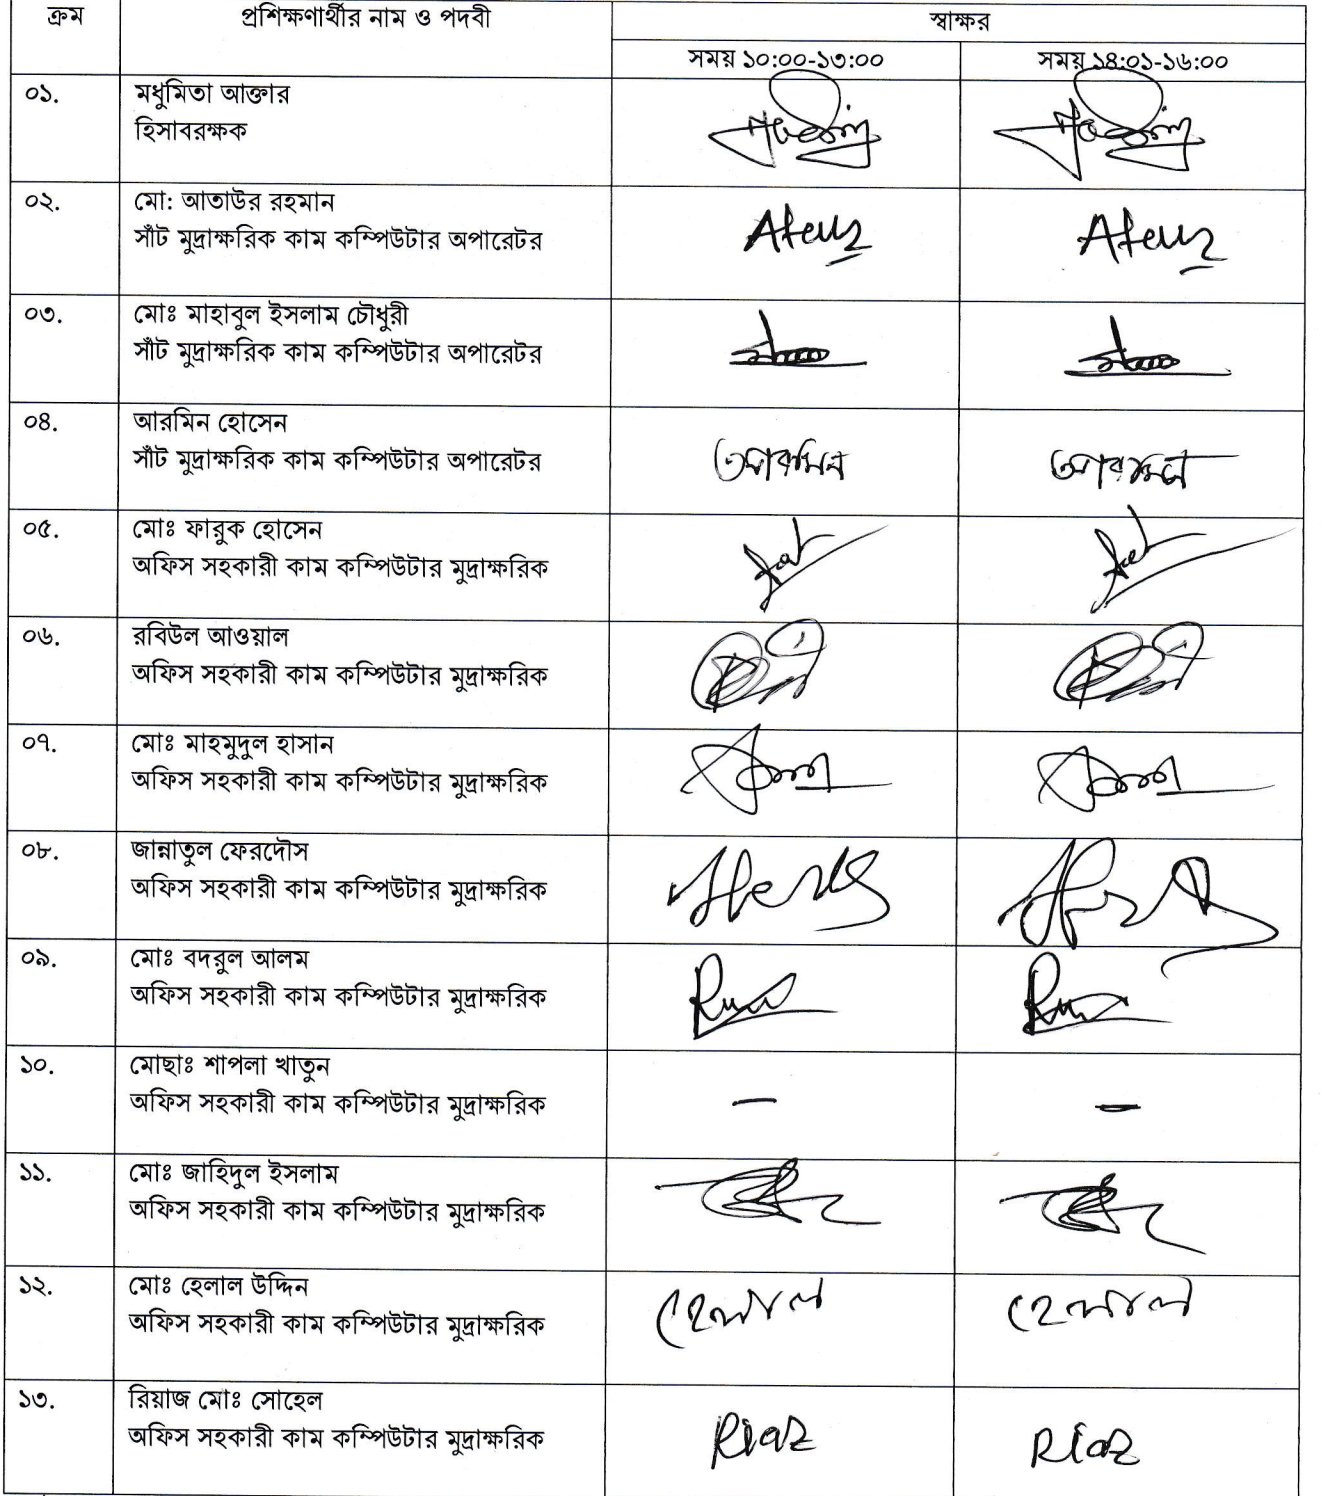 ক্রম প্রশিক্ষণার্থীর নাম ও পদবী স্বাক্ষর
সময় ১০:০০-১৩:০০ সময় ১৪:০১-১৬:০০
০১. মধুমিতা আক্তার
হিসাবরক্ষক
০২. মো: আতাউর রহমান
সাঁট মুদ্রাক্ষরিক কাম কম্পিউটার অপারেটর
০৩. মোঃ মাহাবুল ইসলাম চৌধুরী
সাঁট মুদ্রাক্ষরিক কাম কম্পিউটার অপারেটর
০৪. আরমিন হোসেন
সাঁট মুদ্রাক্ষরিক কাম কম্পিউটার অপারেটর
আরমিন
০৫. মোঃ ফারুক হোসেন
অফিস সহকারী কাম কম্পিউটার মুদ্রাক্ষরিক
০৬. রবিউল আওয়াল
অফিস সহকারী কাম কম্পিউটার মুদ্রাক্ষরিক
০৭. মোঃ মাহমুদুল হাসান
অফিস সহকারী কাম কম্পিউটার মুদ্রাক্ষরিক
০৮. জান্নাতুল ফেরদৌস
অফিস সহকারী কাম কম্পিউটার মুদ্রাক্ষরিক
০৯. মোঃ বদরুল আলম
অফিস সহকারী কাম কম্পিউটার মুদ্রাক্ষরিক
১০. মোছাঃ শাপলা খাতুন
অফিস সহকারী কাম কম্পিউটার মুদ্রাক্ষরিক
— —
১১. মোঃ জাহিদুল ইসলাম
অফিস সহকারী কাম কম্পিউটার মুদ্রাক্ষরিক
১২. মোঃ হেলাল উদ্দিন
অফিস সহকারী কাম কম্পিউটার মুদ্রাক্ষরিক
হেলাল হেলাল
১৩. রিয়াজ মোঃ সোহেল
অফিস সহকারী কাম কম্পিউটার মুদ্রাক্ষরিক
Riaz Riaz